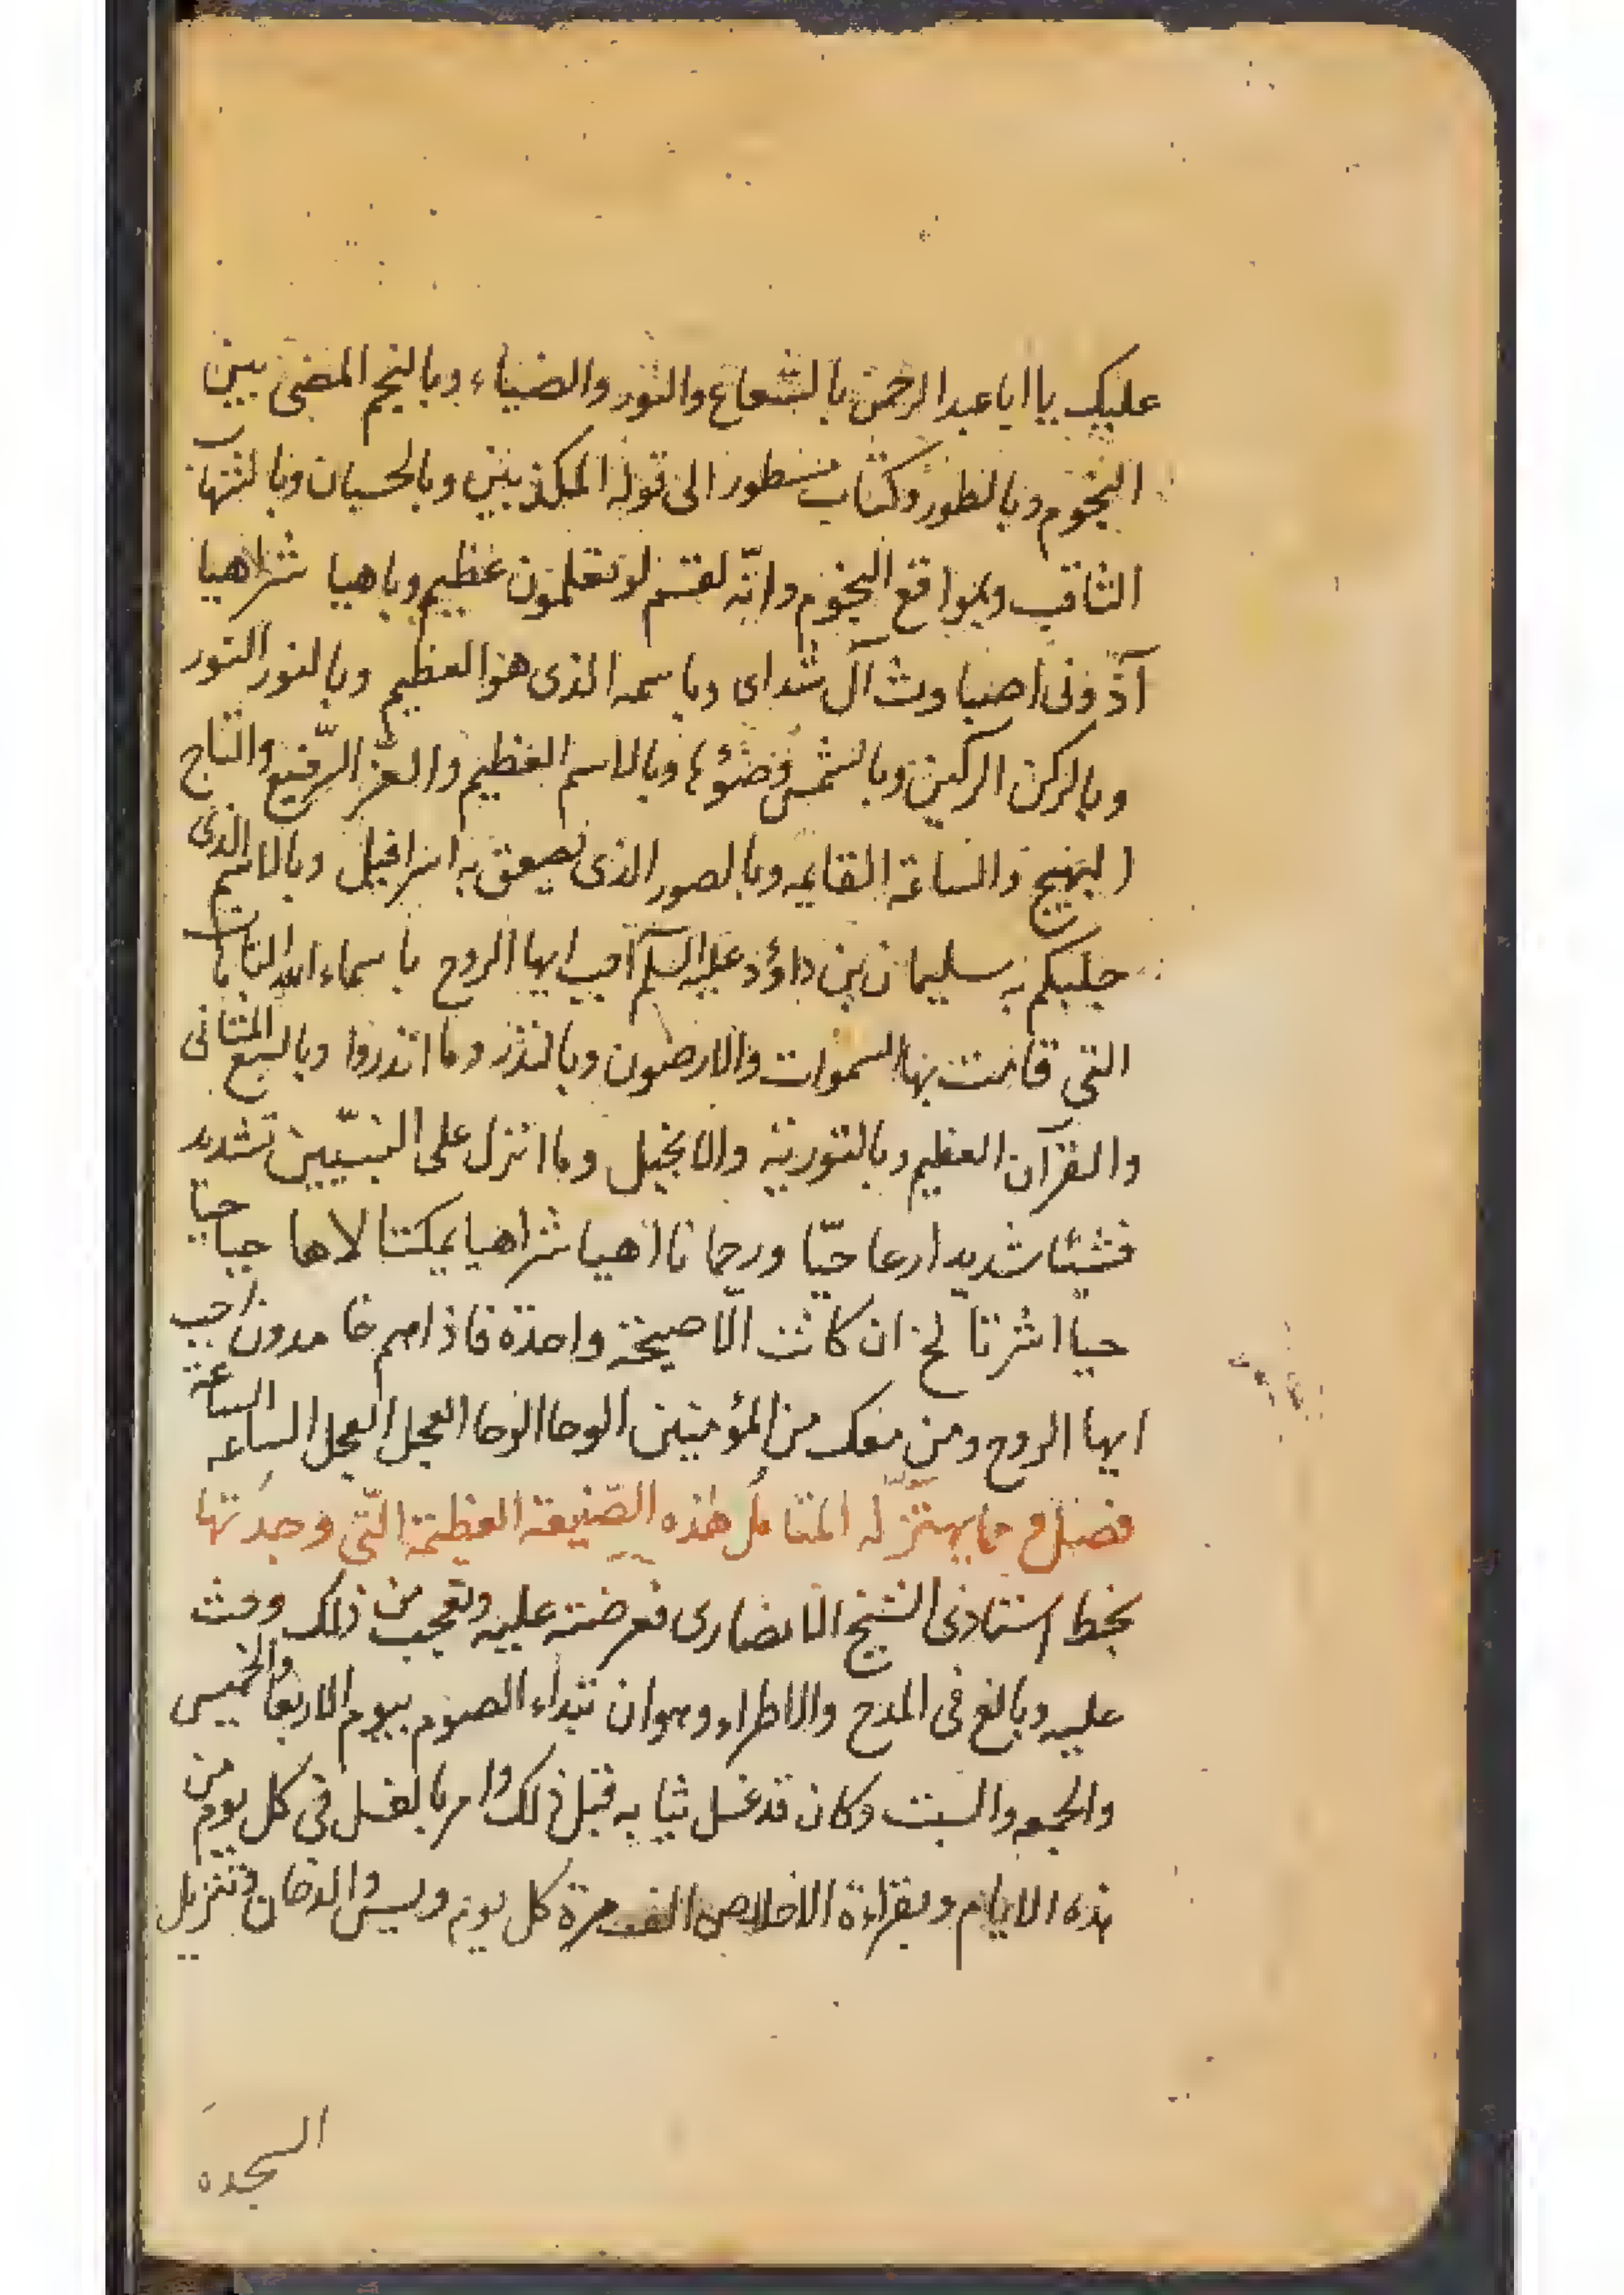 عليك يا ابا عبد الرحمن بالشعاع والنور والضياء وبالنجم المضئ بين
النجوم وبالطور وكتاب مسطور الى قوله المكذبين وبالحسبان وبالشهاب
الثاقب وبمواقع النجوم وانّه لقسم لو تعلمون عظيم وباهيا شراهيا
آذونى اصباوث آل شداى وباسمه الذى هو العظيم وبالنور النور
وبالركن الركين وبالشمس وضوئها وبالاسم العظيم والعّز الرّفيع والتاج
البهيج والساعة القايمه وبالصور الذى يصعق به اسرافيل وبالاسم الذى
جلبكم به سليمان بن داؤد عليه السلم اجب ايها الروح باسماء الله التامات
التى قامت بها السموات والارضون وبالنذر وما انذروا وبالسبع المثانى
والقرآن العظيم وبالتورية والانجيل وما انزل على النبيّين تشديد
شديد ارعا حيّا ورحمانا اهيا شراهيا يمكتنا لاها حيا حيا
حيا ان كانت الّا صيحة واحدة فاذاهم خامدون اجب
ايها الروح ومن معك من المؤمنين الوحا الوحا العجل العجل الساعه الساعة
فصل مما يهتزّ له المتامل هذه الصّنيعة العظيمة الّتى وجدتها
بخط استاذى الشيخ الانصارى فعرضته عليه وتعجب من ذلك وحث
عليه وبالغ فى المدح والاطراء وهو ان تبداء الصوم بيوم الاربعا والخميس
والجمعه والسبت وكان قد غسل ثيابه قبل ذلك وامر بالغسل فى كل يوم من
هذه الايام وبقراءة الاخلاص الف مرة كل يوم ويس والدخان وتنزيل
السجده